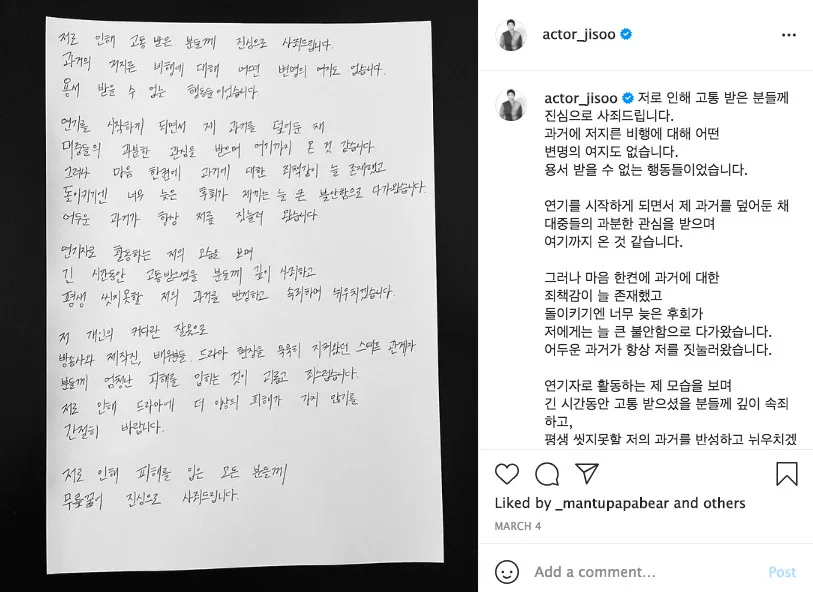 저로 인해 고통 받은 분들께 진심으로 사죄드립니다.
과거의 저지른 비행에 대해 어떤 변명의 여지도 없습니다.
용서 받을 수 없는 행동들이었습니다.
연기를 시작하게 되면서 제 과거를 덮어둔 채
대중들의 과분한 관심을 받으며 여기까지 온 것 같습니다.
그러나 마음 한켠에 과거에 대한 죄책감이 늘 존재했고
돌이키기엔 너무 늦은 후회가 저에게는 늘 큰 불안함으로 다가왔습니다.
어두운 과거가 항상 저를 짓눌러 왔습니다.
연기자로 활동하는 저의 모습을 보며
긴 시간동안 고통받으셨을 분들께 깊이 사죄하고
평생 씻지못할 저의 과거를 반성하고 속죄하며 뉘우치겠습니다.
저 개인의 커다란 잘못으로
방송사와 제작진, 배우분들, 드라마 현장을 묵묵히 지켜왔던 스태프 관계자
분들께 엄청난 피해를 입히는 것이 괴롭고 죄스럽습니다.
저로 인해 드라마에 더 이상의 피해가 가지 않기를
간절히 바랍니다.
저로 인해 피해를 입은 모든 분들께
무릎꿇어 진심으로 사죄드립니다.
actor_jisoo
actor_jisoo 저로 인해 고통 받은 분들께
진심으로 사죄드립니다.
과거에 저지른 비행에 대해 어떤
변명의 여지도 없습니다.
용서 받을 수 없는 행동들이었습니다.
연기를 시작하게 되면서 제 과거를 덮어둔 채
대중들의 과분한 관심을 받으며
여기까지 온 것 같습니다.
그러나 마음 한켠에 과거에 대한
죄책감이 늘 존재했고
돌이키기엔 너무 늦은 후회가
저에게는 늘 큰 불안함으로 다가왔습니다.
어두운 과거가 항상 저를 짓눌러왔습니다.
연기자로 활동하는 제 모습을 보며
긴 시간동안 고통 받으셨을 분들께 깊이 속죄
하고,
평생 씻지못할 저의 과거를 반성하고 뉘우치겠
Liked by _mantupapabear and others
MARCH 4
Add a comment...
Post